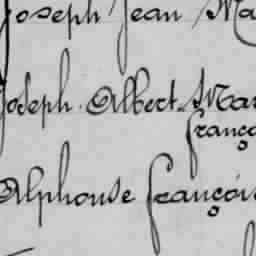 Joseph Jean Ma
Joseph Albert Mar
França
Alphonse Françóis